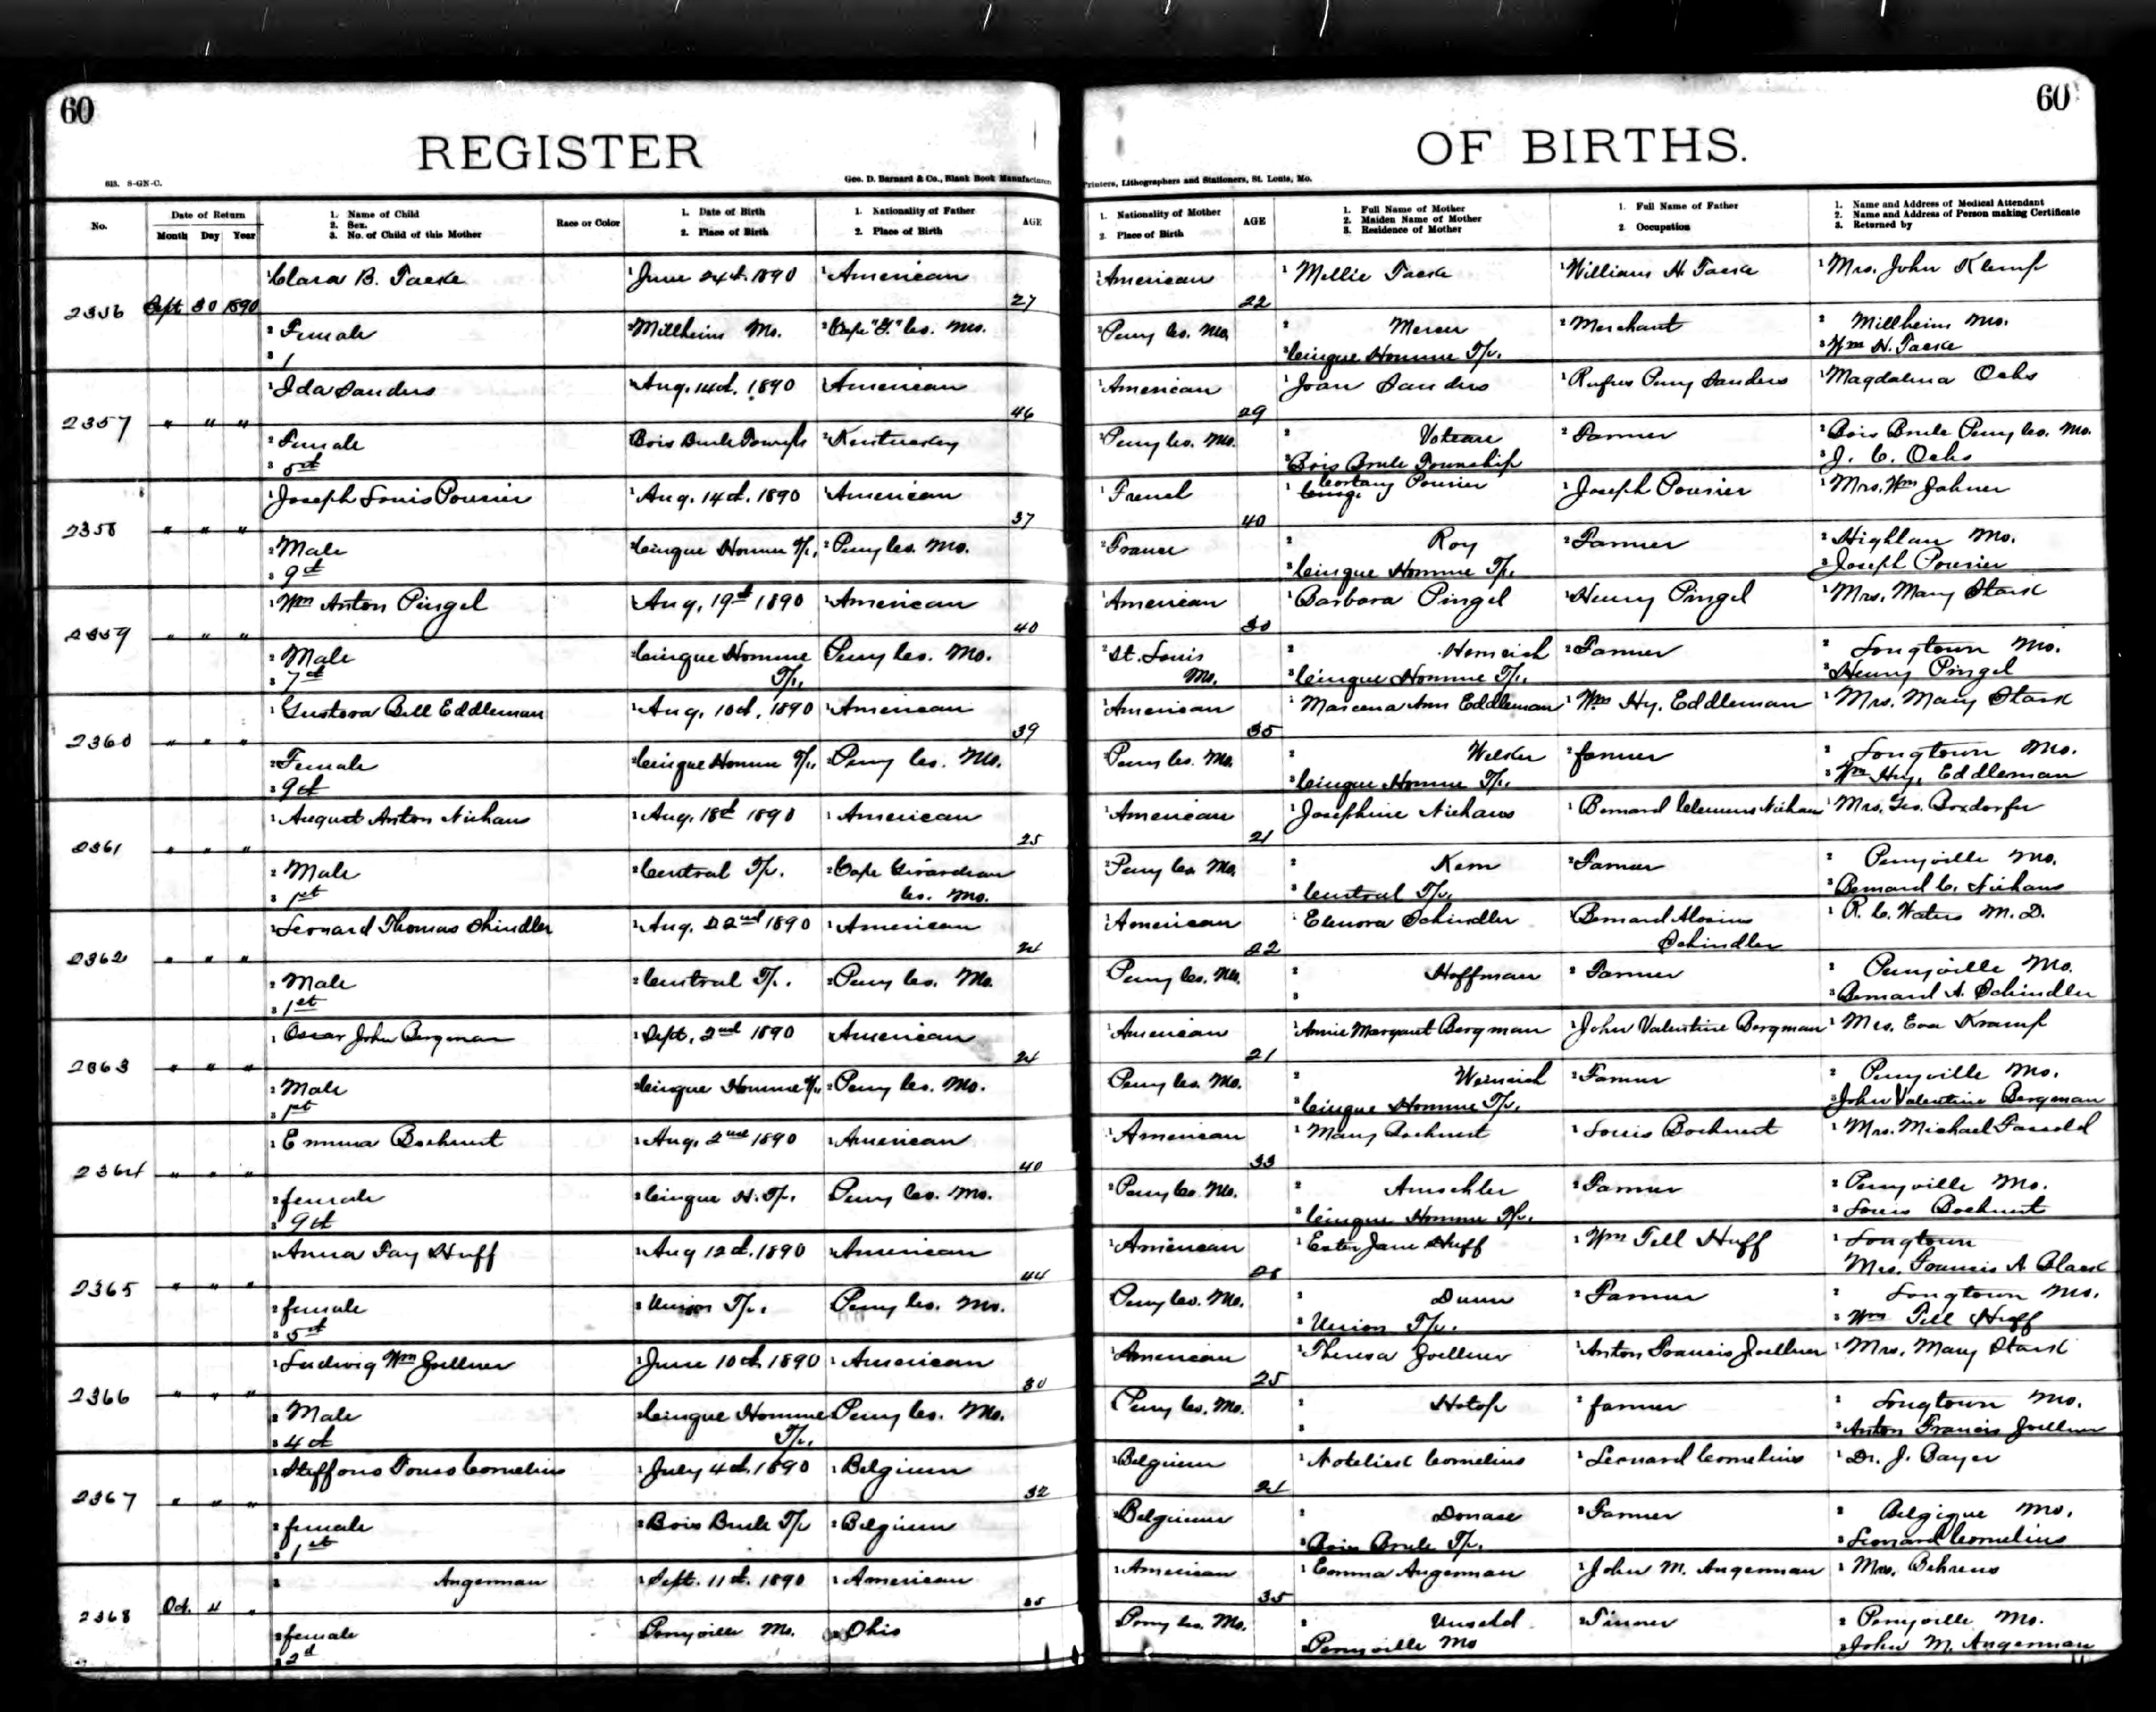 60
60
REGISTER
OF BIRTHS.
613. 8-GN-C.
Geo. D. Barnard & Co., Blank Book Manufacturers
Printers, Lithographers and Stationers, St. Louis, Mo.
No.
Date of Return
Month Day Year
1. Name of Child
2. Sex.
3. No. of Child of this Mother
Race or Color
1. Date of Birth
2. Place of Birth
1. Nationality of Father
2. Place of Birth
AGE
1. Nationality of Mother
2. Place of Birth
AGE
1. Full Name of Mother
2. Maiden Name of Mother
3. Residence of Mother
1. Full Name of Father
2. Occupation
1. Name and Address of Medical Attendant
2. Name and Address of Person making Certificate
3. Returned by
2356 Sept 30 1890
1 Clara B. Taeke 1 June 24th 1890 1 American 27 1 American 22 1 Millie Taeke 1 William H. Taeke 1 Mrs. John Klemp
2 Female 2 Millheim Mo. 2 Cape "G." Co. Mo. 2 Perry Co. Mo. 2 Mercer 2 Merchant 2 Millheim Mo.
3 1 3 Cinque Homme Tp. 3 Wm H. Taeke
2357 " " "
1 Ida Sanders 1 Aug. 14th. 1890 1 American 46 1 American 29 1 Joan Sanders 1 Rufus Perry Sanders 1 Magdalena Ochs
2 Female Bois Brule Townsh 2 Kentucky 2 Perry Co. Mo. 2 2 Farmer 2 Bois Brule Perry Co. Mo.
3 5th 3 Bois Brule Township 3 J. C. Ochs
2358 " " "
1 Joseph Louis Pourier 1 Aug. 14th. 1890 1 American 37 1 French 40 1 Pourier 1 Joseph Pourier 1 Mrs. Wm Jahner
2 Male 2 Cinque Homme Tp. 2 Perry Co. Mo. 2 France 2 Roy 2 Farmer 2 Highlan Mo.
3 9th 3 Cinque Homme Tp. 3 Joseph Pourier
2359 " " "
1 Wm Anton Pingel 1 Aug. 19th 1890 1 American 40 1 American 30 1 Barbara Pingel 1 Henry Pingel 1 Mrs. Mary Stark
2 Male 2 Cinque Homme Tp. Perry Co. Mo. 2 St. Louis Mo. 2 2 Farmer 2 Longtown Mo.
3 7th 3 Cinque Homme Tp. 3 Henry Pingel
2360 " " "
1 Gustava Bell Eddleman 1 Aug. 10th. 1890 1 American 39 1 American 35 1 Ann Eddleman 1 Wm Hy. Eddleman 1 Mrs. Mary Stark
2 Female 2 Cinque Homme Tp. 2 Perry Co. Mo. 2 Perry Co. Mo. 2 Welker 2 farmer 2 Longtown Mo.
3 9th 3 Cinque Homme Tp. 3 Wm Hy. Eddleman
2361 " " "
1 August Anton Niehaus 1 Aug. 18th 1890 1 American 25 1 American 21 1 Josephine Niehaus 1 Bernard Clemens Niehaus 1 Mrs. Geo. Boxdorfer
2 Male 2 Central Tp. 2 Cape Girardeau Co. Mo. 2 Perry Co. Mo. 2 Kern 2 Farmer 2 Perryville Mo.
3 1st 3 Central Tp. 3 Bernard C. Niehaus
2362 " " "
1 Leonard Thomas Shindler 1 Aug. 22nd 1890 1 American 24 1 American 22 1 Elenora Schindler Bernard Alosius Schindler 1 R. C. Waters M. D.
2 Male 2 Central Tp. 2 Perry Co. Mo. Perry Co. Mo. 2 Hoffman 2 Farmer 2 Perryville Mo.
3 1st 3 3 Bernard A. Schindler
2363 " " "
1 Oscar John Bergman 1 Sept. 2nd 1890 American 24 1 American 21 1 Annie Margaret Bergman 1 John Valentine Bergman 1 Mrs. Eva Kramp
2 Male 2 Cinque Homme Tp. 2 Perry Co. Mo. Perry Co. Mo. 2 Weinrich 2 Farmer 2 Perryville Mo.
3 1st 3 Cinque Homme Tp. 3 John Valentine Bergman
2364 " " "
1 Emma Bochnert 1 Aug. 2nd 1890 1 American 40 1 American 33 1 Mary Bochnert 1 Louis Bochnert 1 Mrs. Michael Fassold
2 female 2 Cinque H. Tp. Perry Co. Mo. 2 Perry Co. Mo. 2 Amschler 2 Farmer 2 Perryville Mo.
3 9th 3 Cinque Homme Tp. 3 Louis Bochnert
2365 " " "
1 Anna Fay Huff 1 Aug 12th. 1890 1 American 44 1 American 1 Ester Jane Huff 1 Wm Tell Huff 1 Longtown
Mrs. Francis A. Black
2 female 2 Union Tp. Perry Co. Mo. Perry Co. Mo. 2 Dunn 2 Farmer 2 Longtown Mo.
3 5th 3 Union Tp. 3 Wm Tell Huff
2366 " " "
1 Ludwig Wm Zoellner 1 June 10th 1890 1 American 30 American 25 1 Theresa Zoellner Anton Francis Zoellner 1 Mrs. Mary Stark
2 Male 2 Cinque Homme Tp. Perry Co. Mo. Perry Co. Mo. 2 Hotop 2 farmer 2 Longtown Mo.
3 4th 3 3 Anton Francis Zoellner
2367 " " "
1 Cornelius 1 July 4th. 1890 1 Belgium 32 1 Belgium 21 1 Cornelius 1 Leonard Cornelius 1 Dr. J. Bayer
2 female 2 Bois Brule Tp 2 Belgium 2 Belgium 2 Donase 2 Farmer 2 Belgique Mo.
3 1st 3 Bois Brule Tp. 3 Leonard Cornelius
2368 Oct. 4 "
1 Angerman 1 Sept. 11th. 1890 1 American 35 1 American 35 1 Emma Angerman 1 John M. Angerman 1 Mrs. Behrens
2 female Perryville Mo. 2 Ohio Perry Co. Mo. 2 Unseld 2 Tinner 2 Perryville Mo.
3 2d Perryville Mo 3 John M. Angerman